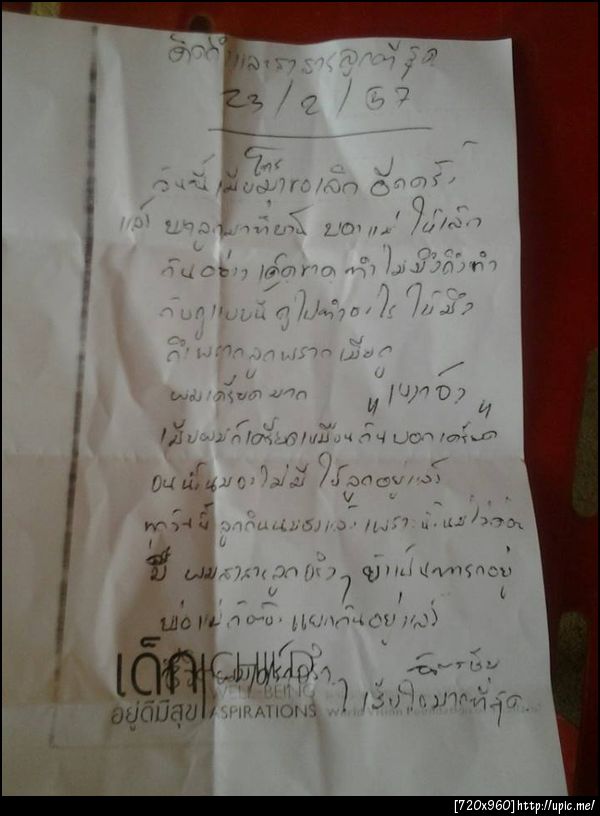 คิดถึงและสงสารลูกที่สุด
23/2/57
วันนี้เมียโทรมาขอเลิก อีกครั้ง
แล้ว ลูกมาที่บ้าน บอกแม่ ให้เลิก
กันอย่างเด็ดขาด ทำไมมึงถึงทำ
กับกูแบบนี้ กูไปทำอะไร ให้มึง
ถึงพรากลูกพรากเมียกู
ผมเครียดมาก
เมียผมก็เครียดเหมือนกันบอกเครียด
จนน้ำนมจะไม่มี ให้ลูกอยู่แล้ว
ทุกวันนี้ ลูกกินนมผงแล้ว เพราะน้ำนมไม่ค่อย
มี ผมสงสารลูกจริงๆ ยังเป็นทารกอยู่
พ่อแม่ก็ต้อง แยกกันอยู่แล้ว
เสียใจมากที่สุด
เด็ก CHILD
WELL-BEING
อยู่ดีมีสุข ASPIRATIONS
[720x960] http://upic.me/